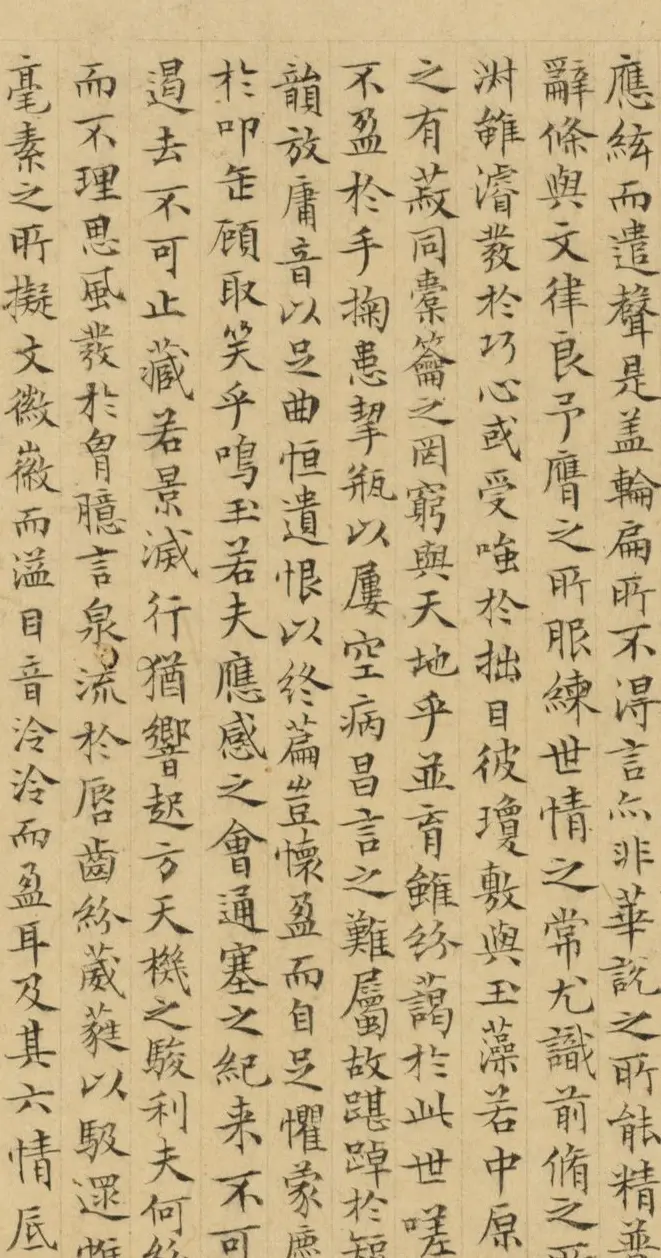 應絃而遣聲是盖輪扁所不得言亦非華說之所能精普
辭條與文律良予膺之所服練世情之常尤識前脩之所
淋雖濬發於巧心或受嗤於拙目彼瓊敷與玉藻若中原
之有菽同橐籥之罔窮與天地乎並育雖紛藹於此世嗟
不盈於手掬患挈瓶以屢空病昌言之難屬故踸踔於短
韻放庸音以足曲恒遺恨以終篇豈懷盈而自足懼蒙塵
於叩缶顧取笑乎鳴玉若夫應感之會通塞之紀来不可
遏去不可止藏若景滅行猶響起方天機之駿利夫何紛
而不理思風發於胷臆言泉流於唇齒紛葳蕤以馺遝惟
毫素之所擬文徽徽而溢目音泠泠而盈耳及其六情底